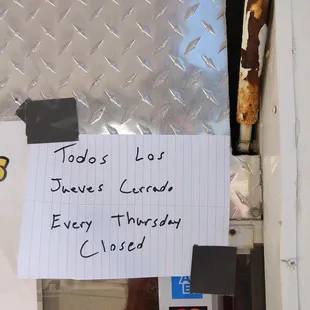 Todos Los
Jueves Cerrado
Every Thursday
Closed